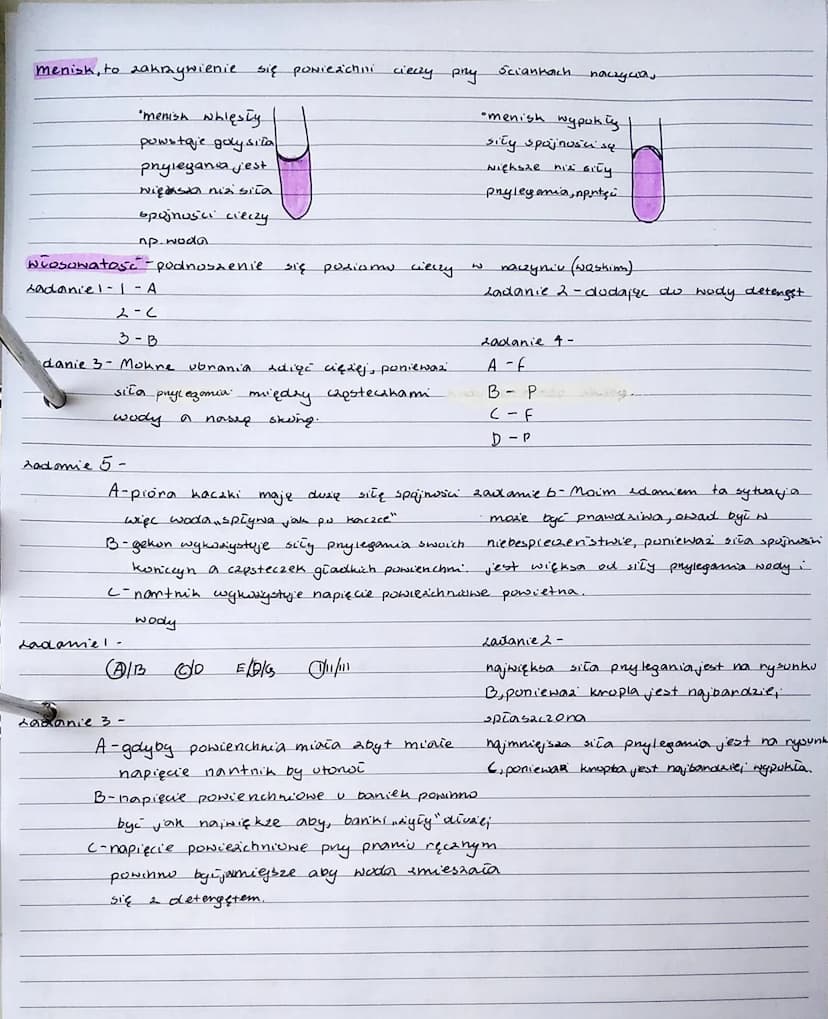 menisk, to zakrzywienie się powierzchni cieczy przy ściankach naczycia,
"menisk wklęsły
powstaje gdy siła
przylegania jest
większa niż siła
spójności cieczy
np. woda
"menisk wypukły
siły spójności są
większe niż siły
przylegania, np rtęć
włosowatość - podnoszenie się poziomu cieczy w naczyniu (wąskim)
zadanie 1 - 1 - A
2 - C
3 - B
zadanie 2 - dodając do wody detengęt
danie 3 - Mokre ubrania zdjąć ciężej, ponieważ
siła przylegania między cząsteczkami
wody a naszą skórą.
zadanie 4 -
A - f
B - P
C - F
D - P
zadanie 5 -
A - pióra kaczki mają dużą siłę spójności
więc woda „spływa jak po kaczce"
B - gekon wykorzystuje siły przylegania swoich
kończyn a cząsteczek gładkich powierzchni.
C - nartnik wykorzystuje napięcie powierzchniowe
wody
zadanie 6 - Moim zdaniem ta sytuacja
może być prawdziwa, owad był w
niebespieczeństwie, ponieważ siła spójności
jest więksa od siły przylegania wody i
powietrza.
zadanie 1 -
A/B C/D E/D/G I/II/III
zadanie 2 -
największa siła przylegania jest na rysunku
B, ponieważ kropla jest najbardziej
spłaszczona
najmniejsza siła przylegania jest na rysunk
C, ponieważ kropka jest najbardziej wypukła.
zadanie 3 -
A - gdyby powierzchnia miała zbyt małe
napięcie nartnik by utonął
B - napięcie powierzchniowe u baniek powinno
być jak największe aby, bańki „żyły" dłużej
C - napięcie powierzchniowe przy praniu ręcznym
powinno być jamiejsze aby woda zmieszała
się z detergętem.